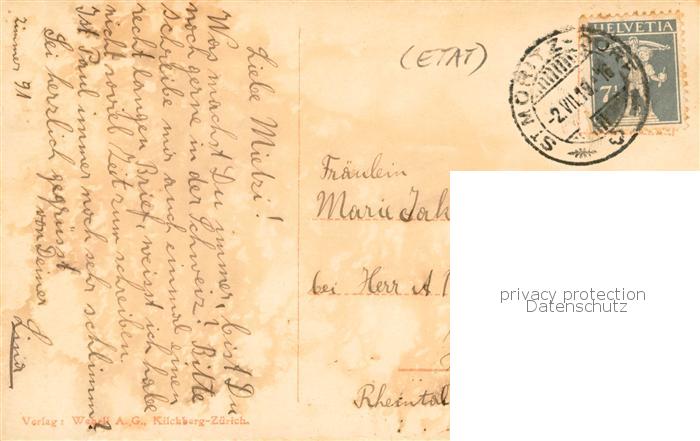 Liebe Mietzi!
Was machst Du immer, bist Du
noch gerne in der Schweiz? Bitte
schreibe mir auch einmal einen
recht langen Brief, weisst ich habe
nicht soviel Zeit zum schreiben
Ist Paul immer noch sehr schlimm?
Sei herzlich gegrüsst
von Deiner
Lina
Zimmer 71
(ETAT)
HELVETIA
7½
ST MORITZ-DORF
-2.VII.18.
Fräulein
Marie Jak
bei Herr A
Rheintal
privacy protection
Datenschutz
Verlag: Wehrli A. G., Kilchberg-Zürich.